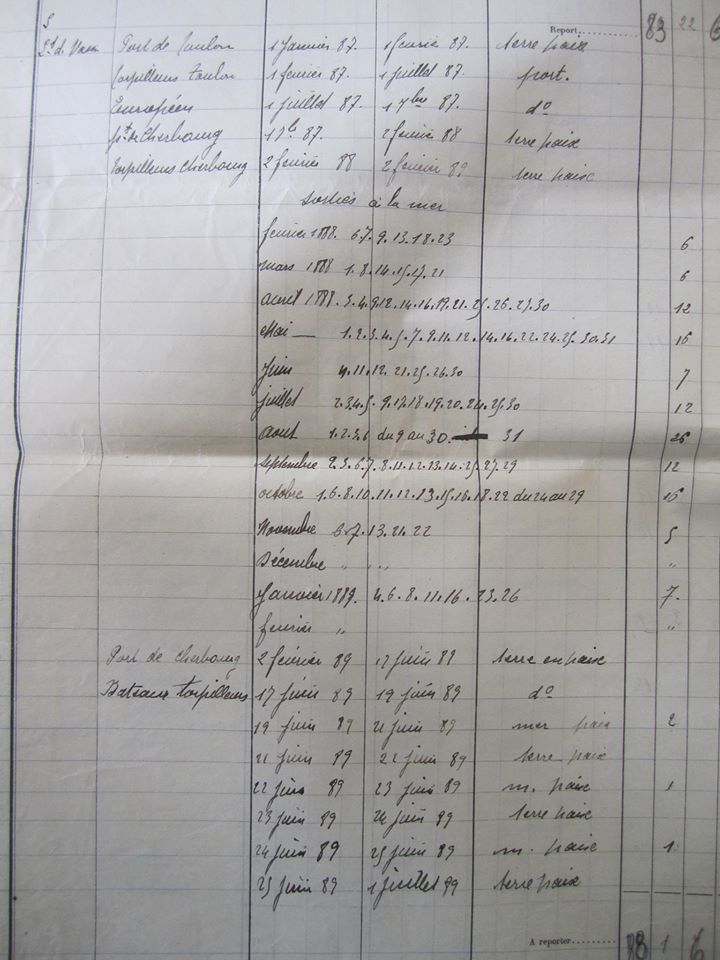 S
Report 83 22 6
Port de Toulon 1 Janvier 87. 1 février 87. terre paix
torpilleurs Toulon 1 février 87. 1 juillet 87. port.
Européen 1 juillet 87. 1 7bre 87. do
pt de Cherbourg 1 7b 87. 2 février 88 terre paix
torpilleurs Cherbourg 2 février 88 2 février 89 terre paix
Sorties à la mer
février 1888. 6.7.9.13.18.23 6
mars 1888 1.8.14.15.17.21 6
avril 1888. 3.4.9.12.14.16.19.21.25.26.27.30 12
Mai — 1.2.3.4.5.7.9.11.12.14.16.22.24.25.30.31 16
Juin 4.11.12.21.25.26.30 7
juillet 2.3.4.5.9.17.18.19.20.24.25.30 12
aout 1.2.3.6 du 9 au 30. 31
septembre 2.3.6.7.8.11.12.13.14.25.27.29 12
octobre 1.6.8.10.11.12.13.15.16.18.22 du 24 au 29
Novembre 6.7.13.21.22 5
Décembre " " "
Janvier 1889. 4.6.8.11.16.23.26 7.
février " "
Port de Cherbourg 2 février 89 17 juin 89 terre en paix
Bateaux torpilleurs 17 juin 89 19 juin 89 do
19 juin 89 21 juin 89 mer paix 2
21 juin 89 22 juin 89 terre paix
22 juin 89 23 juin 89 m. paix 1
23 juin 89 24 juin 89 terre paix
24 juin 89 25 juin 89 m. paix 1
25 juin 89 1 juillet 89 terre paix
A reporter 88 1 6